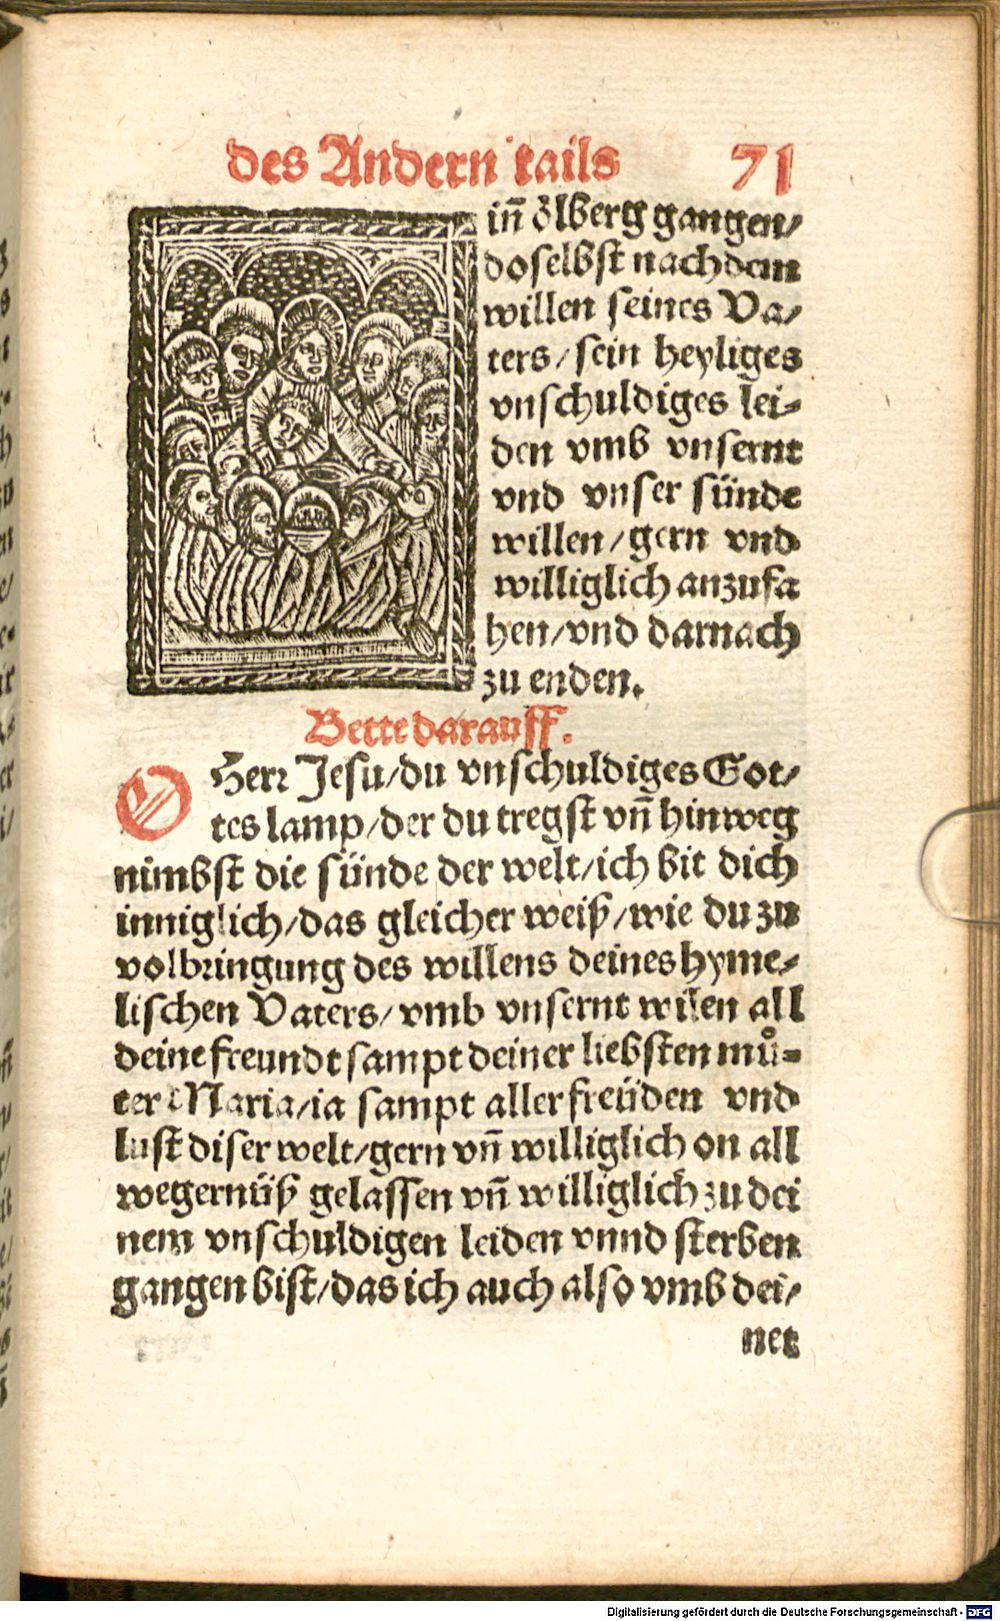 des Andern tails 71
in̄ ölberg gangen/
doselbst nach dem
willen seines Va/
ters/sein heyliges
vnschuldiges lei-
den vmb vnsernt
vnd vnser sünde
willen/gern vnd
williglich anzufa
hen/vnd darnach
zu enden.
Bette darauff.
O Herr Jesu/du vnschuldiges Got/
tes lamp/der du tregst vn̄ hinweg
nimbst die sünde der welt/ich bit dich
inniglich/das gleicher weiß/wie du zu
volbringung des willens deines hyme-
lischen Vaters/vmb vnsernt willen all
deine freundt sampt deiner liebsten muͦ-
ter Maria/ia sampt aller freüden vnd
lust diser welt/gern vn̄ williglich on all
wegernüß gelassen vn̄ williglich zu dei
nem vnschuldigen leiden vnnd sterben
gangen bist/das ich auch also vmb dei/
net
Digitalisierung gefördert durch die Deutsche Forschungsgemeinschaft - DFG